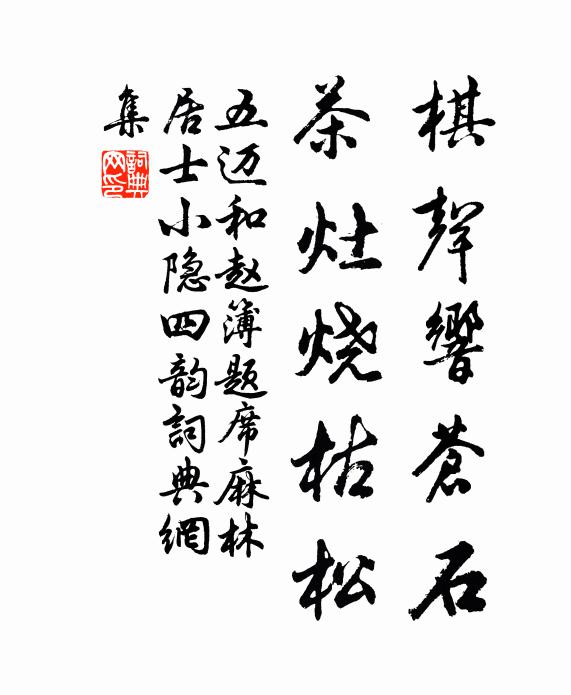 棋聲響蒼石
茶灶烧枯松
五迈和赵簿题席麻林
居士小隐四韵詞典網
集
詞典网印